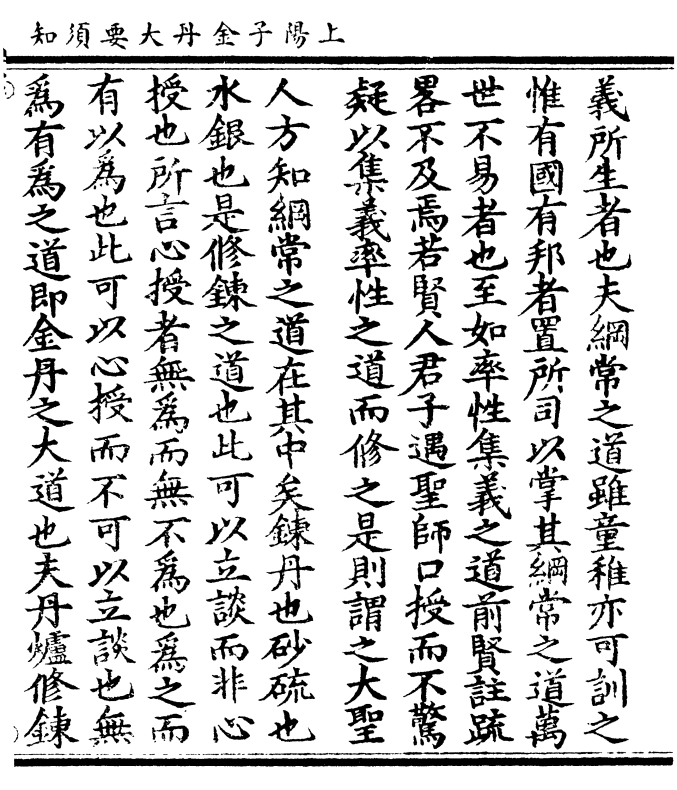 上陽子金丹大要須知
義所生者也夫綱常之道雖童稚亦可訓之
惟有國有邦者置所司以掌其綱常之道萬
世不易者也至如率性集義之道前賢註疏
畧不及焉若賢人君子遇聖師口授而不驚
疑以集義率性之道而修之是則謂之大聖
人方知綱常之道在其中矣鍊丹也砂硫也
水銀也是修鍊之道也此可以立談而非心
授也所言心授者無為而無不為也為之而
有以為也此可以心授而不可以立談也無
為有為之道即金丹之大道也夫丹爐修鍊